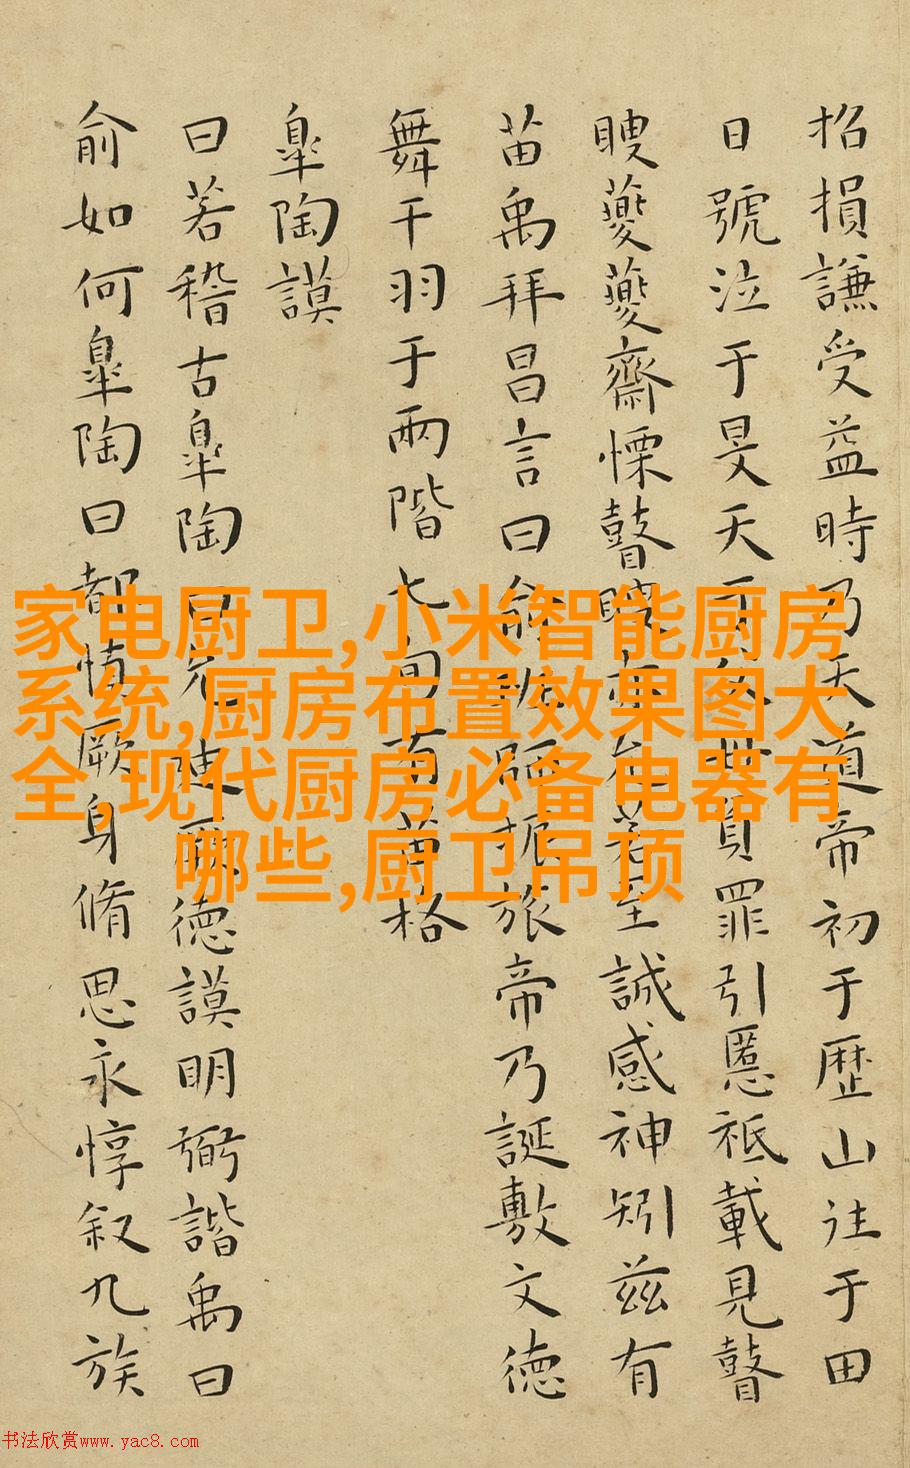 招損謙受益時乃天道帝初于歴山往于田
日號泣于旻天于父母負罪引慝祗載見瞽
瞍夔夔齋慄瞽瞍亦允若至誠感神矧兹有
苗禹拜昌言曰俞班師振旅帝乃誕敷文德
舞干羽于兩階七旬有苗格
皐陶謨
曰若稽古皐陶曰允迪厥德謨明弼諧禹曰
俞如何皐陶曰都慎厥身脩思永惇叙九族
家电厨卫,小米智能厨房
系统,厨房布置效果图大
全,现代厨房必备电器有
哪些,厨卫吊顶
书法欣赏www.yac8.com